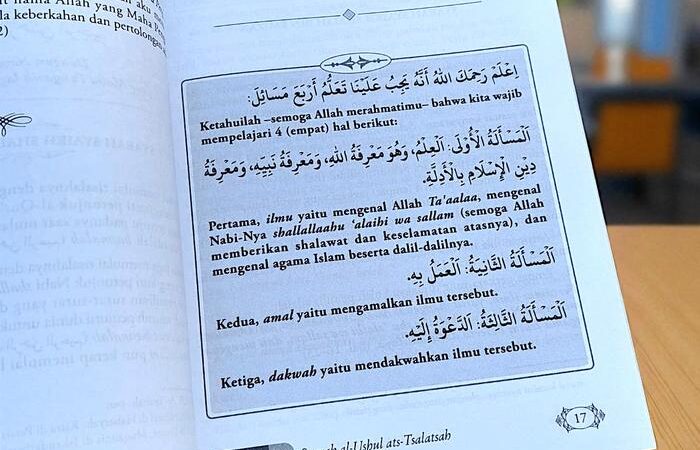 aku m
Allah yang Maha
keberkahan dan pertolongan
2)
اِعْلَمْ رَحِمَكَ اللهُ أَنَّهُ يَجِبُ عَلَيْنَا تَعَلُّمُ أَرْبَعِ مَسَائِلَ:
Ketahuilah –semoga Allah merahmatimu– bahwa kita wajib
mempelajari 4 (empat) hal berikut:
اَلْمَسْأَلَةُ الْأُوْلَى: اَلْعِلْمُ، وَهُوَ مَعْرِفَةُ اللهِ، وَمَعْرِفَةُ نَبِيِّهِ، وَمَعْرِفَةُ
دِيْنِ الْإِسْلَامِ بِالْأَدِلَّةِ.
Pertama, ilmu yaitu mengenal Allah Ta'aalaa, mengenal
Nabi-Nya shallallaahu 'alaihi wa sallam (semoga Allah
memberikan shalawat dan keselamatan atasnya), dan
mengenal agama Islam beserta dalil-dalilnya.
اَلْمَسْأَلَةُ الثَّانِيَةُ: اَلْعَمَلُ بِهِ.
Kedua, amal yaitu mengamalkan ilmu tersebut.
اَلْمَسْأَلَةُ الثَّالِثَةُ: اَلدَّعْوَةُ إِلَيْهِ.
Ketiga, dakwah yaitu mendakwahkan ilmu tersebut.
17
al-Ushul ats-Tsalatsah